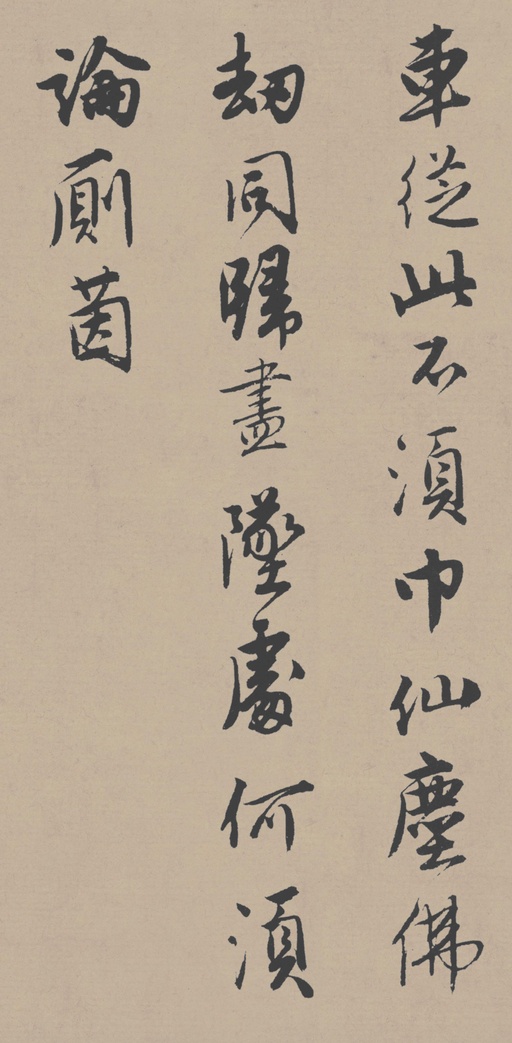 車從此不須巾仙塵佛
劫同歸盡墜處何須
論廁茵